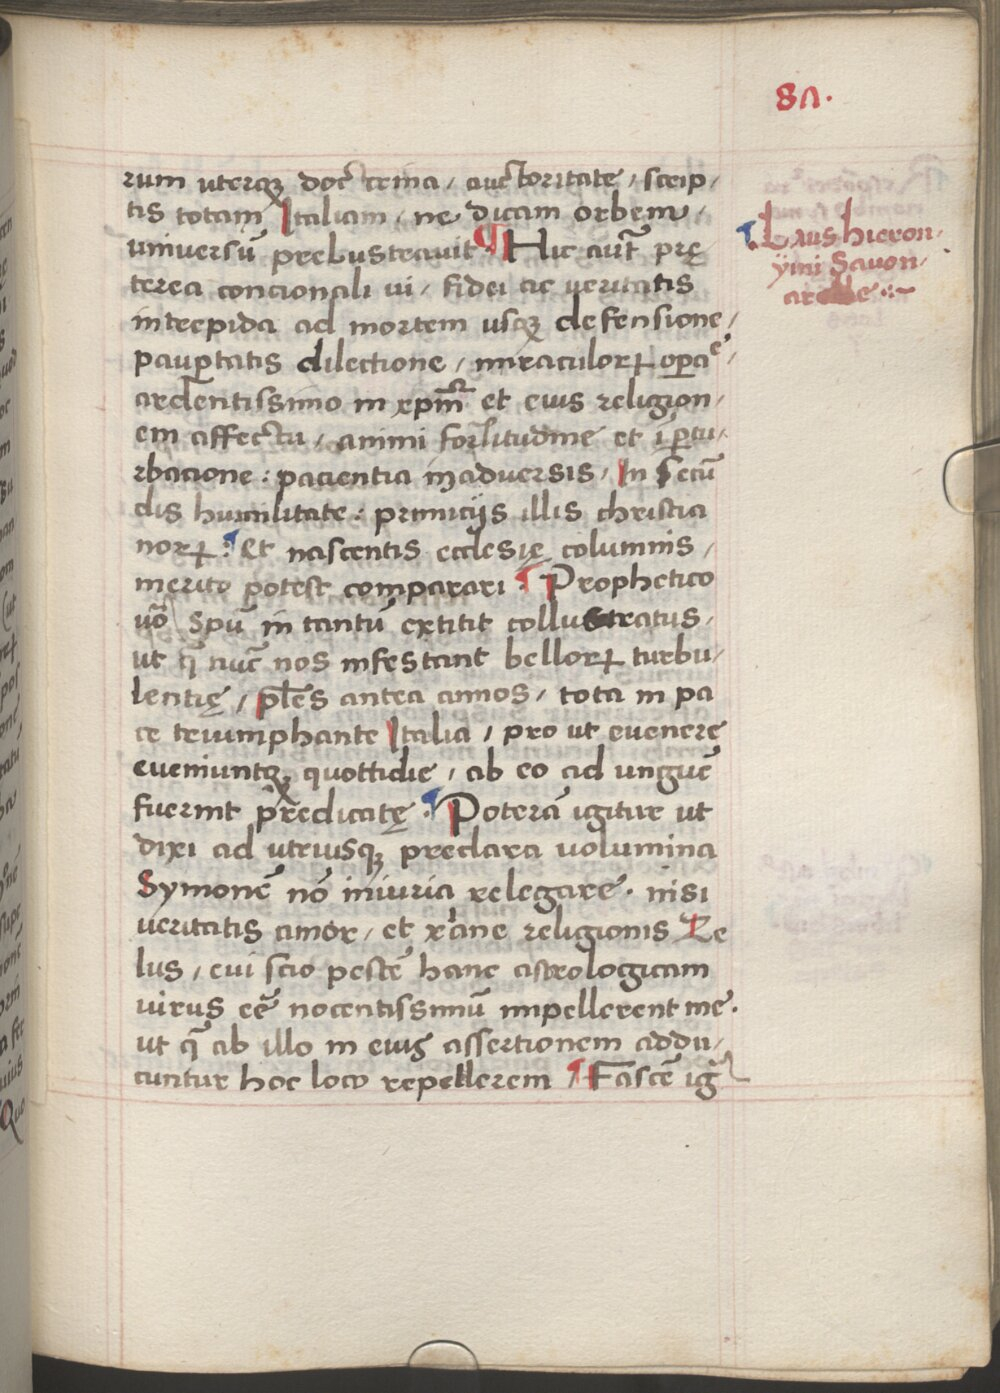 87.
rum uterqȝ doctrina / auctoritate / scrip/
tis totam Italiam / ne dicam orbem /
universū prelustravit · ¶ Hic aūt prę
terea concionali vi / fidei ac veritatis
intrepida ad mortem usqȝ defensione /
paup̄tatis dilectione / miraculoꝝ op̄aē /
ardentissimo in xp̄m et eius religion /
em affectu / animi fortitudine et ip̄tu/
rbacione : pacientia in adversis / In secū
dis humilitate : primicijs illis christia
noꝝ : Et nascentis ecclesię columnis /
merito potest comparari ¶ Prophetico
vō spū in tantū extitit collustratus /
ut q̄ nūc nos infestant belloꝝ turbu/
lentię / pl̄es antea annos / tota in pa
ce triumphante Italia / pro ut evenere
eveniuntqȝ quottidie / ab eo ad unguē
fuerint predicatę · ¶ Poterā igitur ut
dixi ad utriusqȝ preclara volumina
Symonē nō iniuria relegare · nisi
veritatis amor / et xr̄ane religionis Ze
lus / cui scio pestē hanc astrologicam
virus eē nocentissimū impellerent me ·
ut q̄ ab illo in eius assertionem addu/
cuntur hoc loco repellerem ¶ Fascē igr̄
¶ Laus hieron/
ÿmi Savon/
arole :~